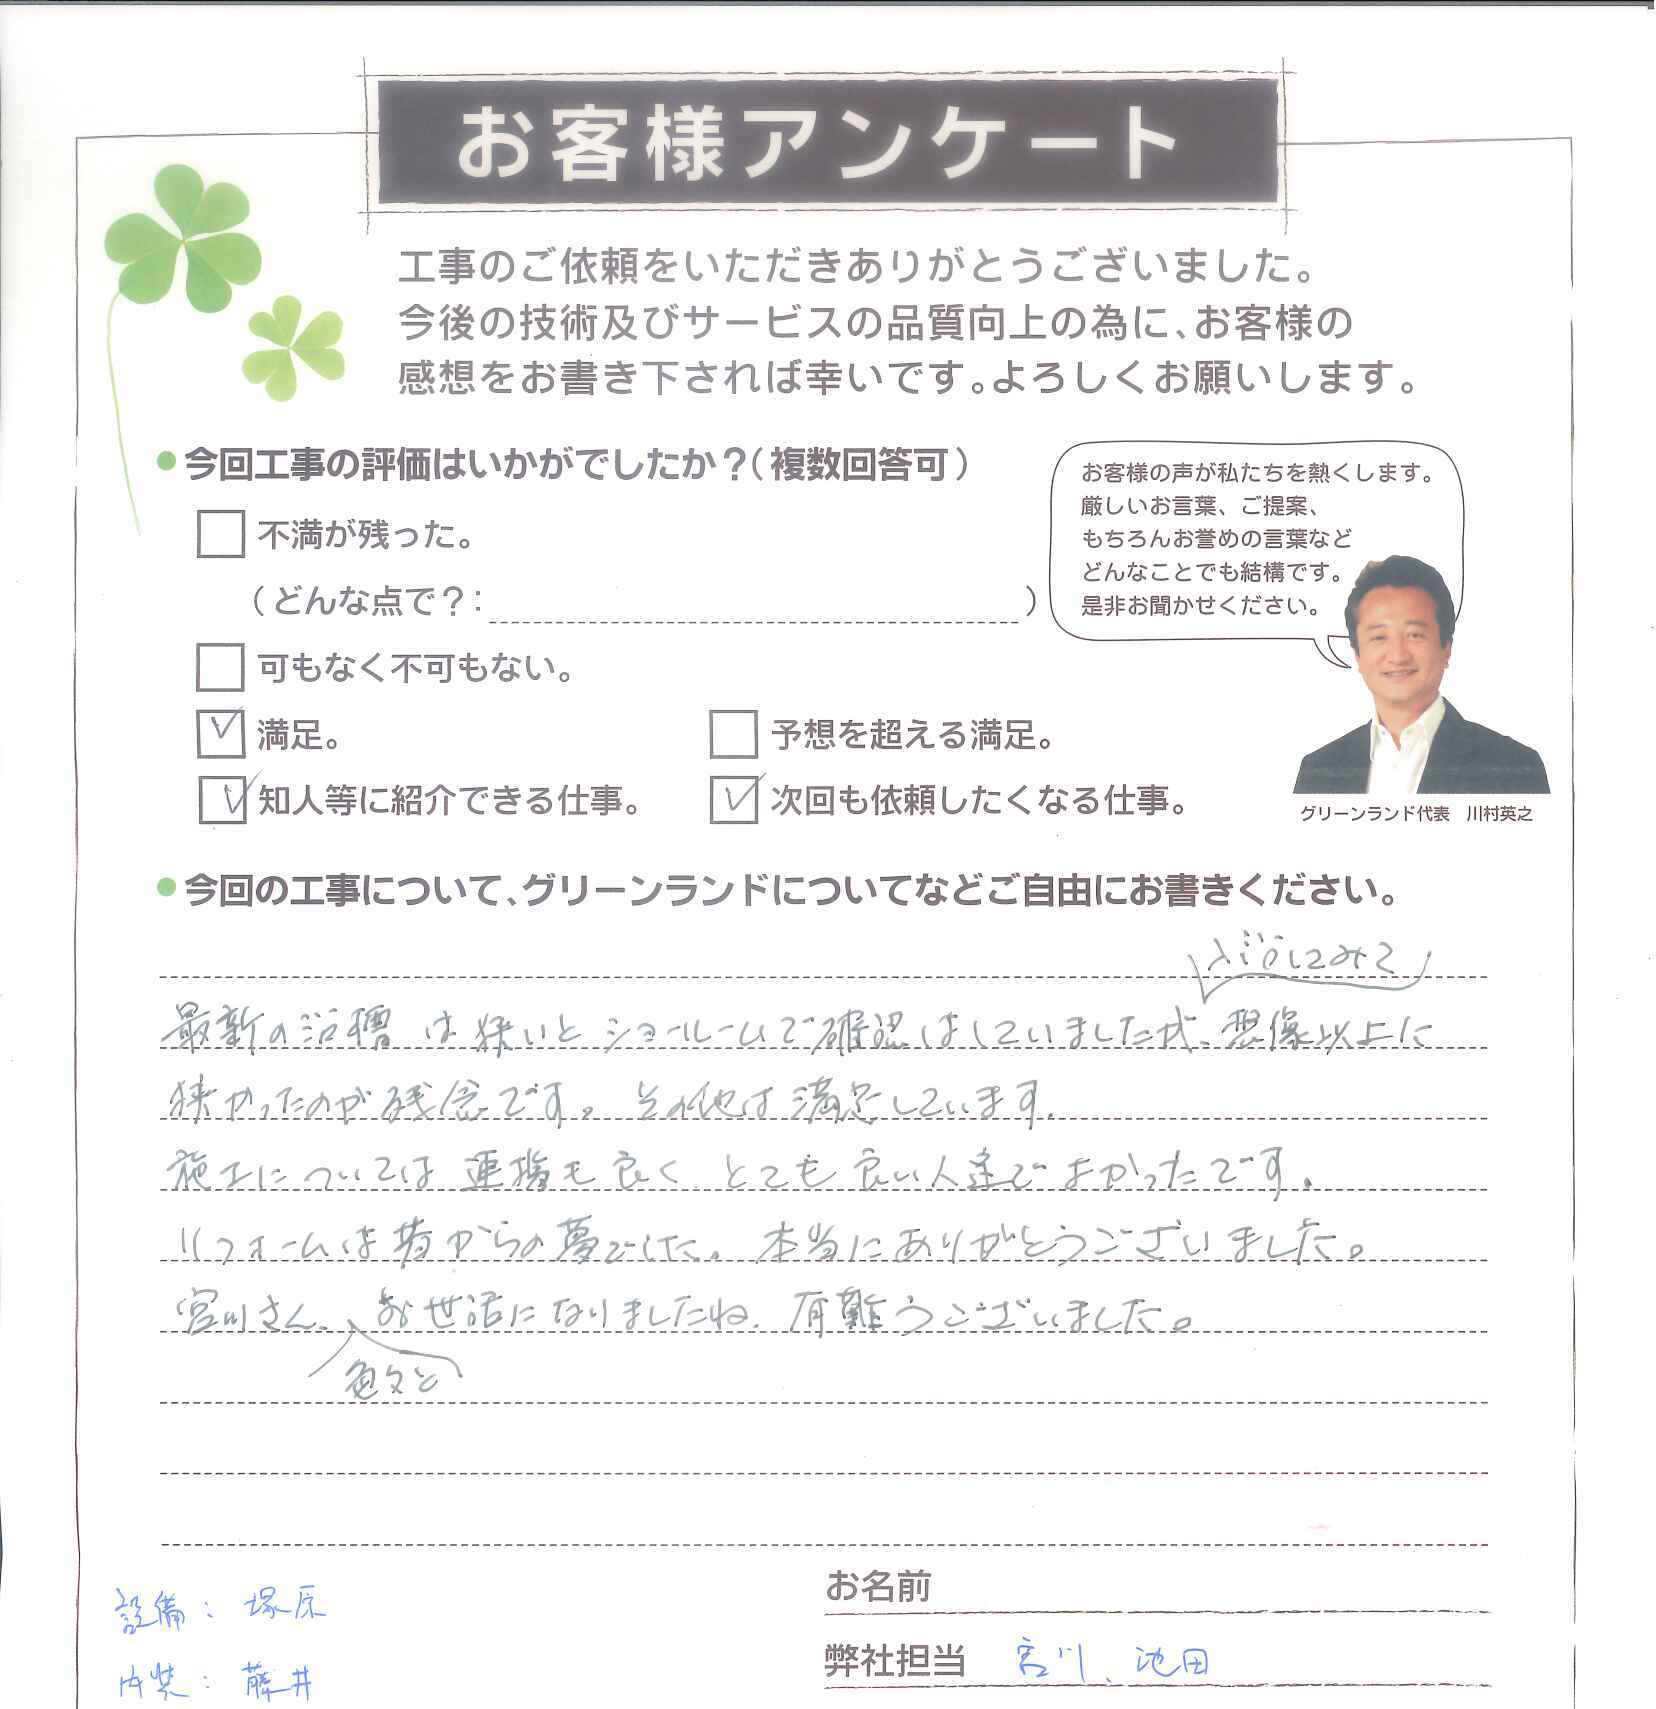 お客様アンケート
工事のご依頼をいただきありがとうございました。
今後の技術及びサービスの品質向上の為に、お客様の
感想をお書き下されば幸いです。よろしくお願いします。
今回工事の評価はいかがでしたか?(複数回答可)
不満が残った。
(どんな点で?: )
可もなく不可もない。
満足。
予想を超える満足。
知人等に紹介できる仕事。
次回も依頼したくなる仕事。
お客様の声が私たちを熱くします。
厳しいお言葉、ご提案、
もちろんお誉めの言葉など
どんなことでも結構です。
是非お聞かせください。
グリーンランド代表 川村英之
今回の工事について、グリーンランドについてなどご自由にお書きください。
入浴してみて
最新の浴槽は狭いとショールームで確認はしていましたが、想像以上に
狭かったのが残念です。その他は満足しています。
施工については連携も良く とても良い人達でよかったです。
リフォームは昔からの夢でした。本当にありがとうございました。
宮川さん、お世話になりましたね。有難うございました。
色々と
お名前
弊社担当 宮川、池田
設備:塚原
内装:藤井